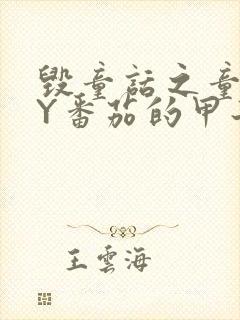 毁童话之童
Y番茄的甲
王雲海